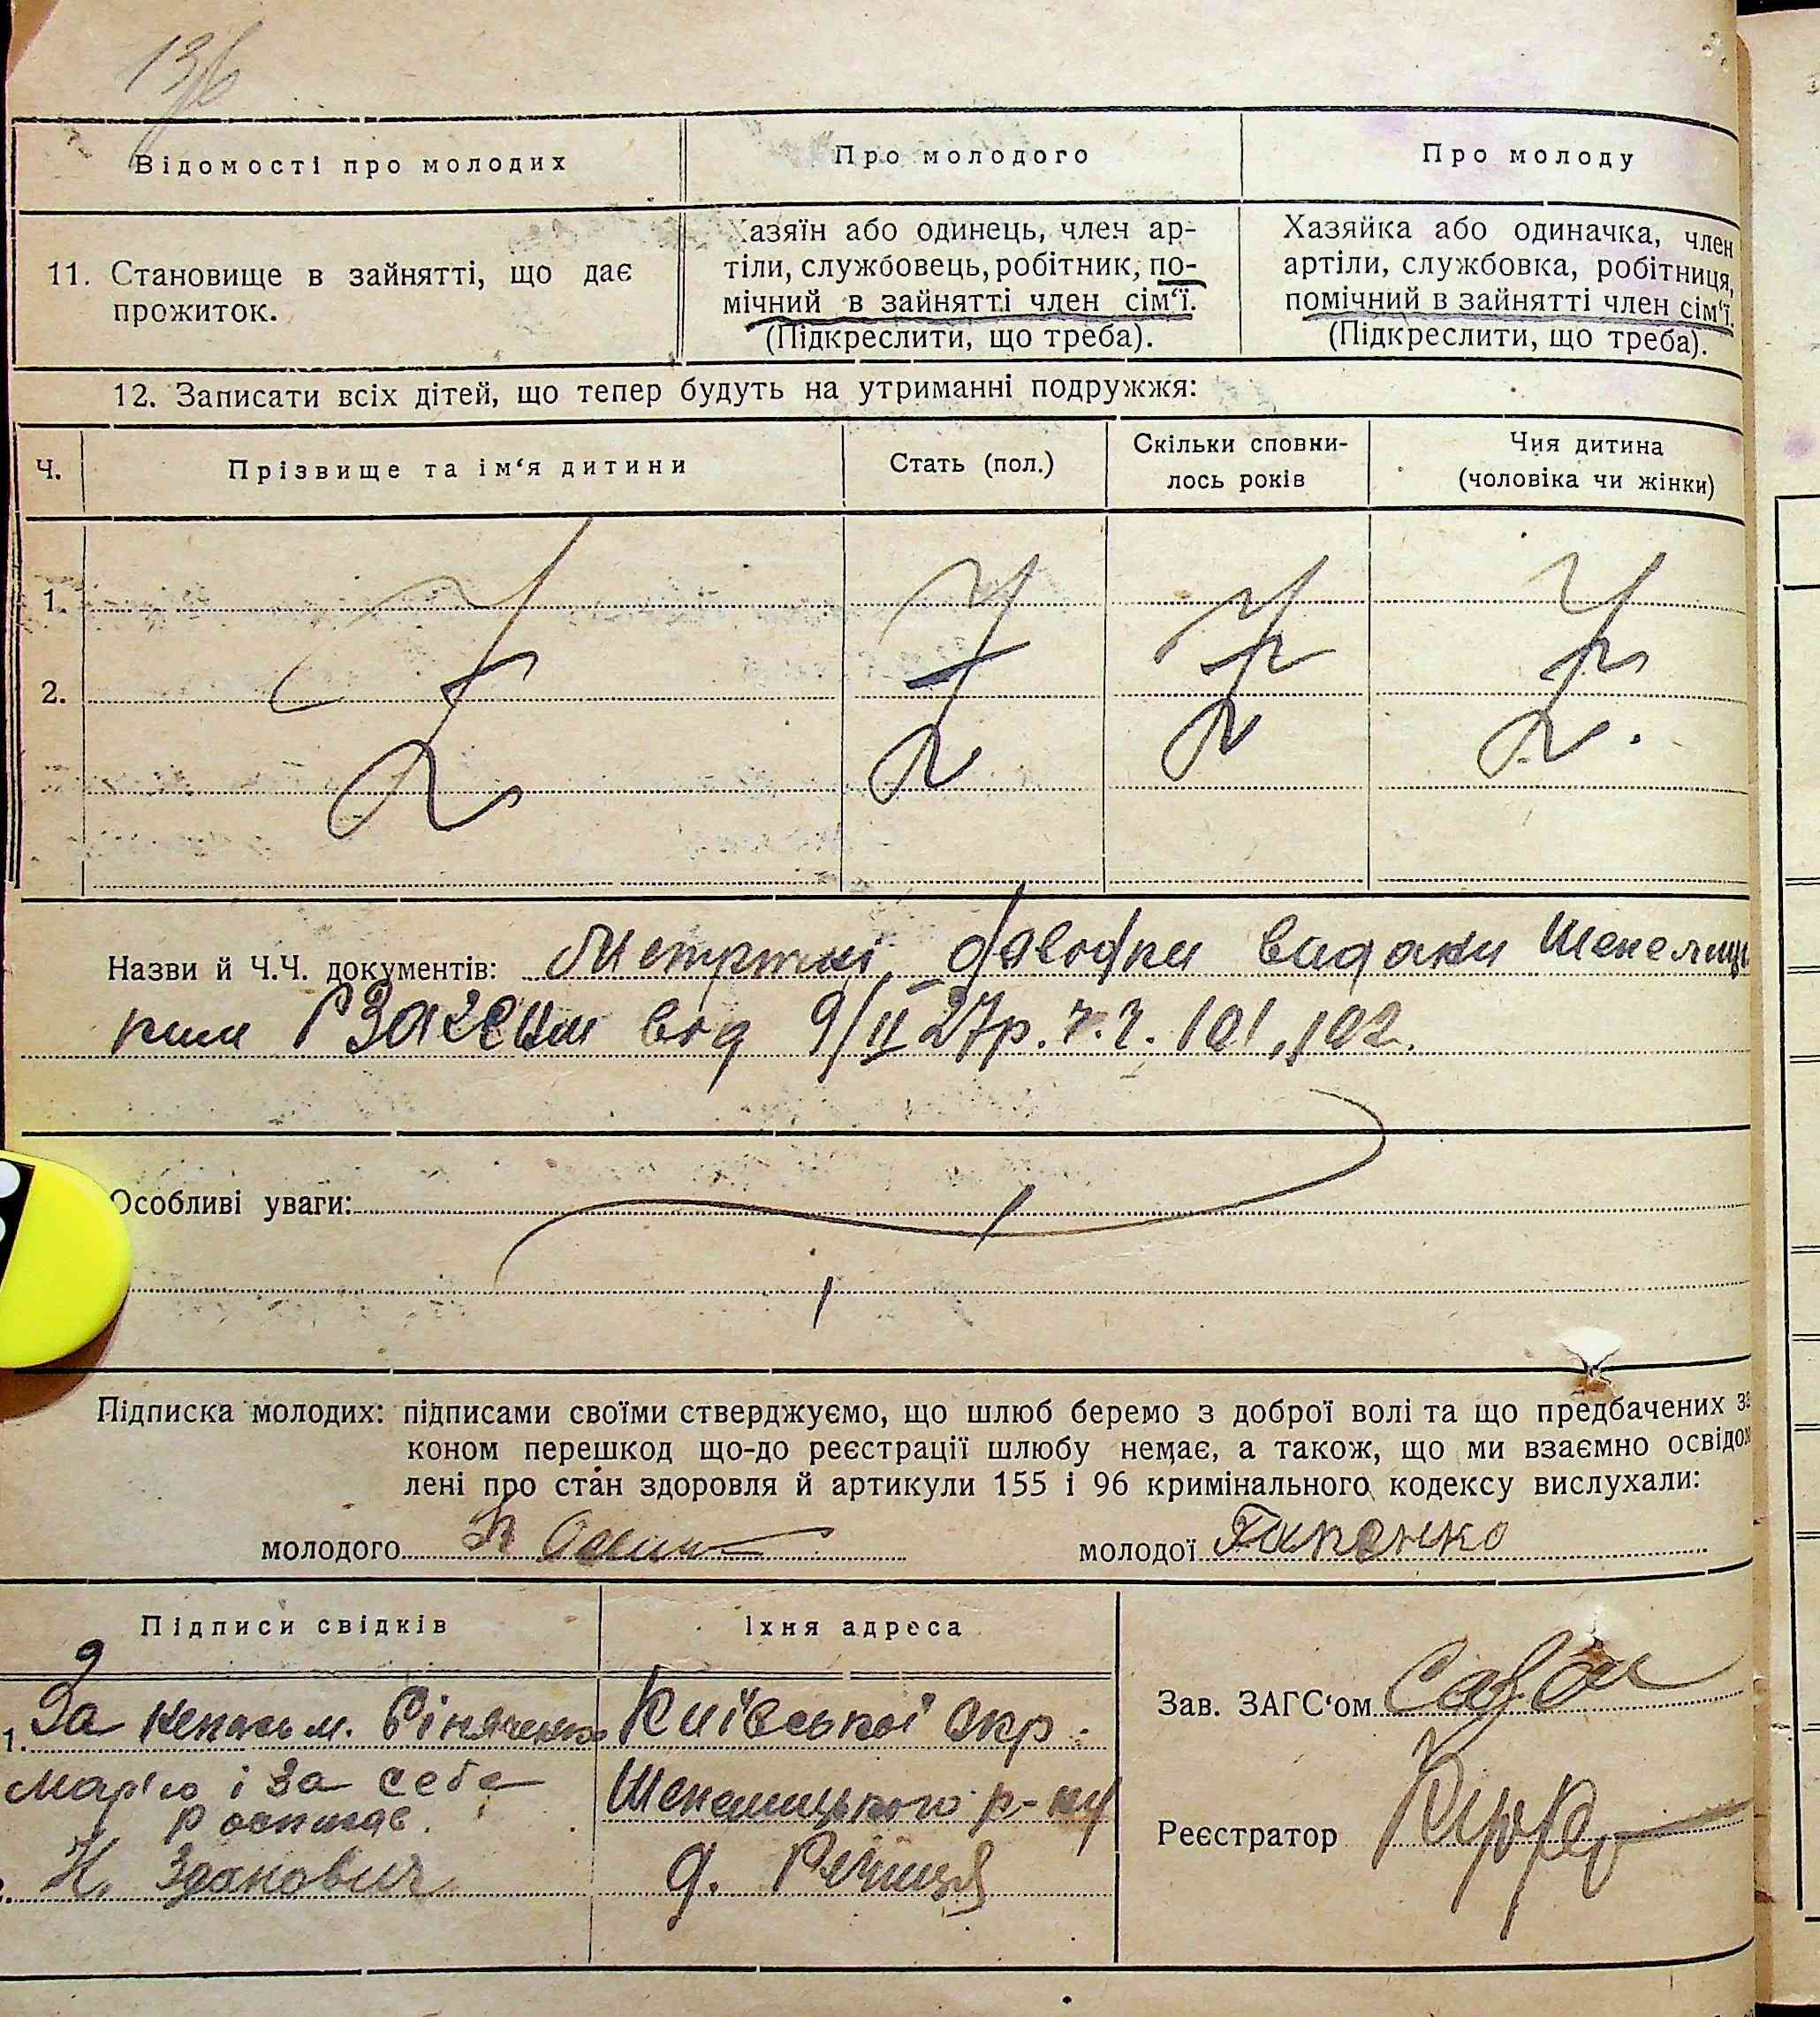 136
Відомості про молодих
Про молодого
Про молоду
11. Становище в зайнятті, що дає
прожиток.
Хазяїн або одинець, член ар-
тіли, службовець, робітник, по-
мічний в зайнятті член сім‘ї.
(Підкреслити, що треба).
Хазяйка або одиначка, член
артіли, службовка, робітниця,
помічний в зайнятті член сім‘ї.
(Підкреслити, що треба).
12. Записати всіх дітей, що тепер будуть на утриманні подружжя:
Ч.
Прізвище та ім‘я дитини
Стать (пол.)
Скільки сповни-
лось років
Чия дитина
(чоловіка чи жінки)
1.
2.
Назви й Ч.Ч. документів: довідки видани
від 9/II 27р. ч.ч. 101, 102.
Особливі уваги:
Підписка молодих: підписами своїми стверджуємо, що шлюб беремо з доброї волі та що предбачених за
коном перешкод що-до реєстрації шлюбу немає, а також, що ми взаємно освідом
лені про стан здоровля й артикули 155 і 96 кримінального кодексу вислухали:
молодого
молодої
Підписи свідків
Їхня адреса
1. За
Київської окр.
Мар'ю і за себе
р-ну
Н. Зданович
д.
Зав. ЗАГС‘ом
Реєстратор